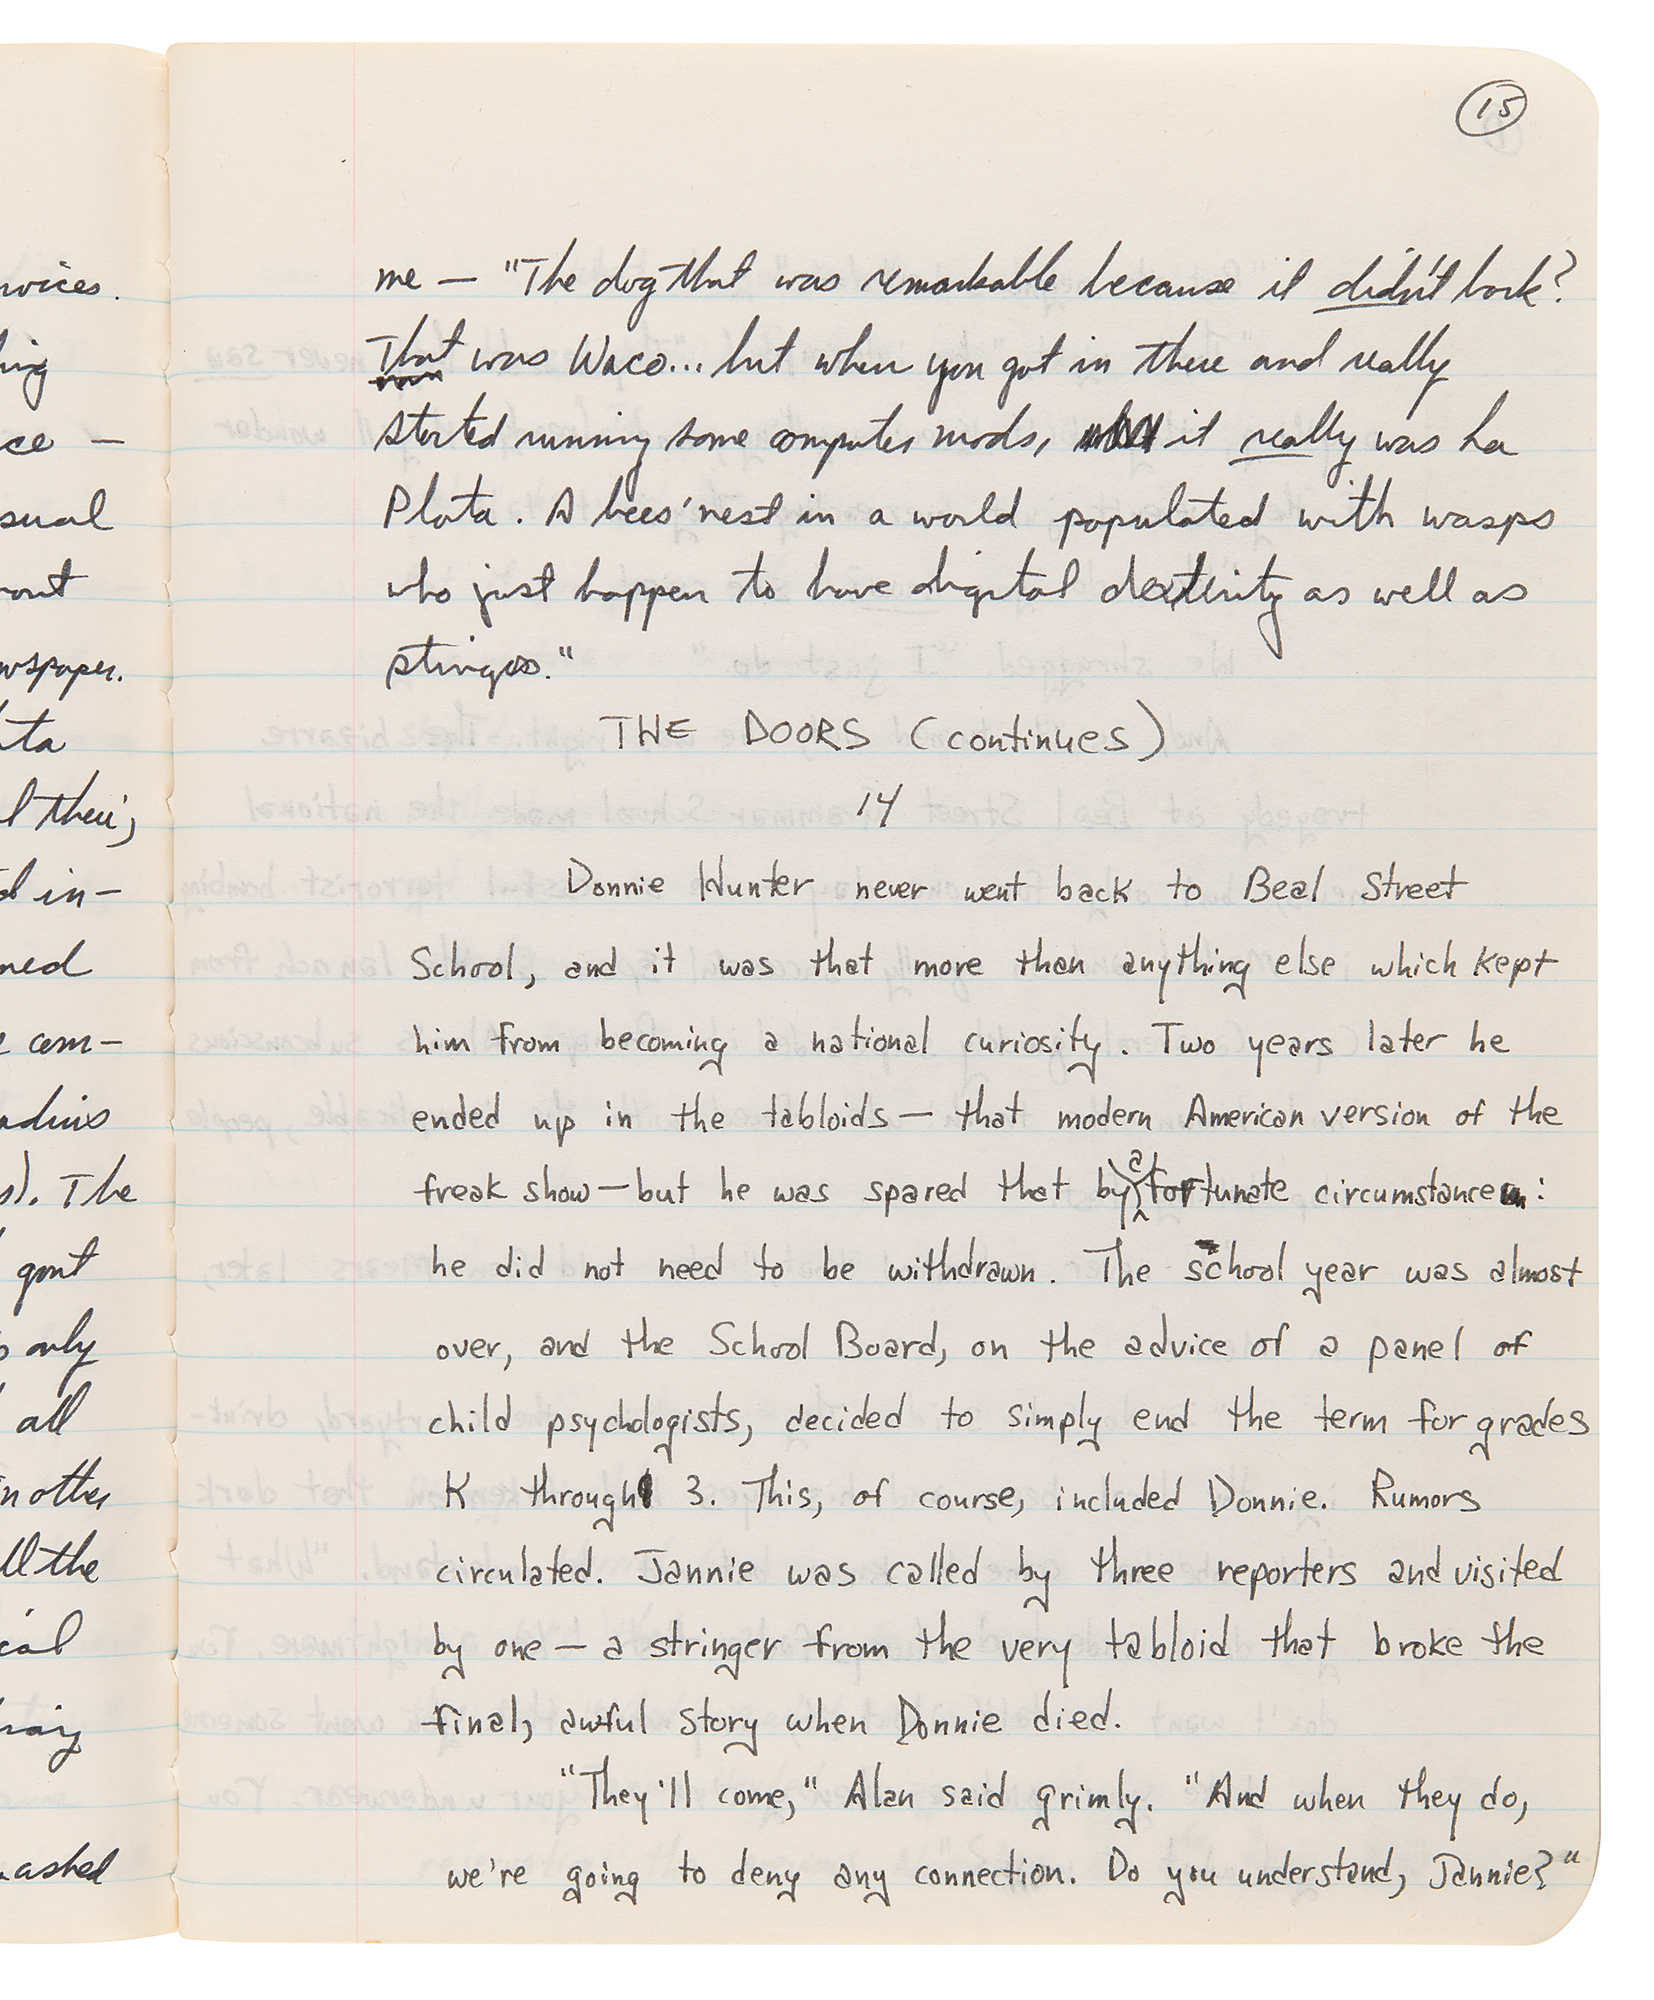 15
me — "The dog that was remarkable because it didn't bark?
That was Waco... but when you got in there and really
started running some computer mods, it really was La
Plata. A bees' nest in a world populated with wasps
who just happen to have digital dexterity as well as
stingers."
THE DOORS (continues)
14
Donnie Hunter never went back to Beal Street
School, and it was that more than anything else which kept
him from becoming a national curiosity. Two years later he
ended up in the tabloids — that modern American version of the
freak show — but he was spared that by a fortunate circumstance:
he did not need to be withdrawn. The school year was almost
over, and the School Board, on the advice of a panel of
child psychologists, decided to simply end the term for grades
K through 3. This, of course, included Donnie. Rumors
circulated. Jannie was called by three reporters and visited
by one — a stringer from the very tabloid that broke the
final, awful story when Donnie died.
"They'll come," Alan said grimly. "And when they do,
we're going to deny any connection. Do you understand, Jannie?"